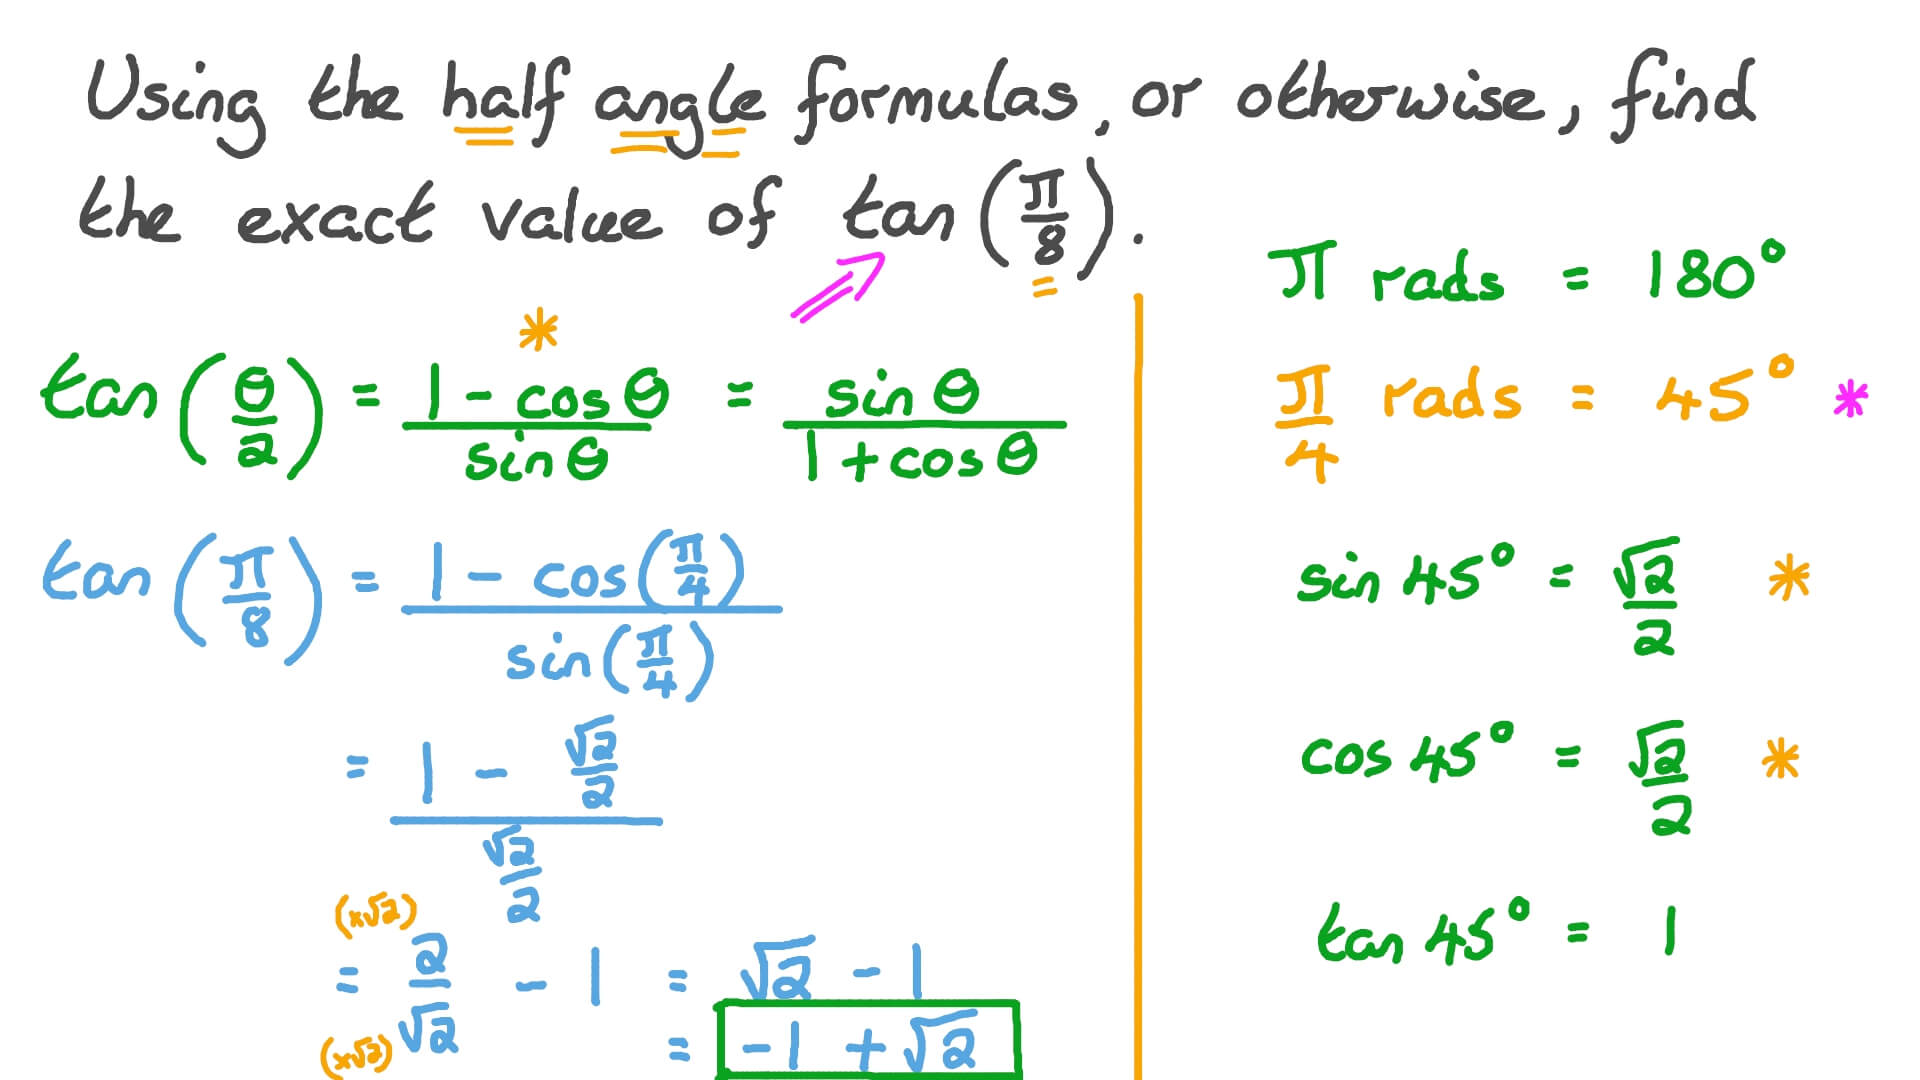 Using the half angle formulas, or otherwise, find
the exact value of tan(π/8).
*
tan(θ/2) = (1 - cosθ)/(sinθ) = (sinθ)/(1 + cosθ)
tan(π/8) = (1 - cos(π/4))/(sin(π/4))
= (1 - √2/2)/(√2/2)
(×√2)
= 2/√2 - 1 = √2 - 1
(×√2)
= -1 + √2
π rads = 180°
π/4 rads = 45° *
sin 45° = √2/2 *
cos 45° = √2/2 *
tan 45° = 1